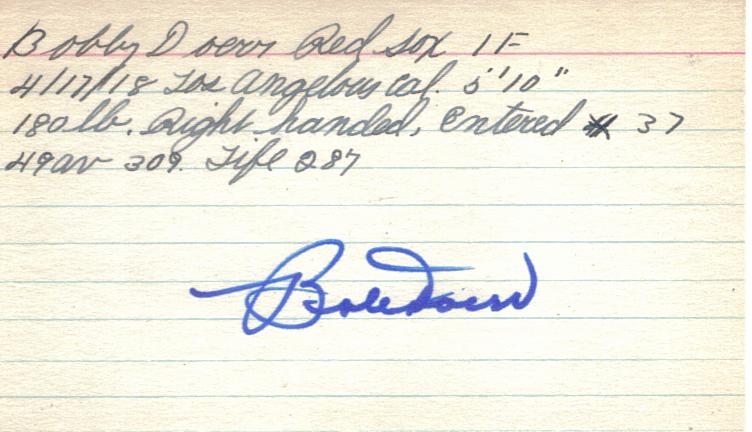 Bobby Doerr Red Sox IF
4/17/18 Los Angelous Cal. 5'10"
180 lb. Right handed, Entered 37
49 av 309. Life 287
Bob Doerr